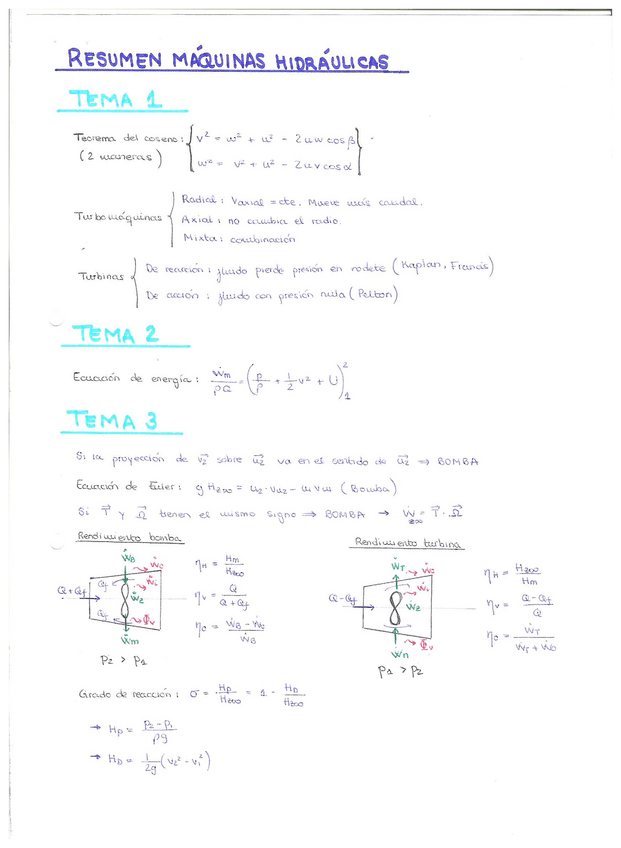 RESUMEN MÁQUINAS HIDRÁULICAS
TEMA 1
Teorema del coseno: { v² = w² + u² - 2uw cosβ
(2 maneras) { w² = v² + u² - 2uv cosα
Turbomáquinas { Radial: Vaxial = cte. Mueve más caudal.
Axial: no cambia el radio.
Mixta: combinación
Turbinas { De reacción: fluido pierde presión en rodete (Kaplan, Francis)
De acción: fluido con presión nula (Pelton)
TEMA 2
Ecuación de energía: Ẇm/ρQ = (p/ρ + 1/2 v² + U)²₁
TEMA 3
Si la proyección de v₂ sobre u₂ va en el sentido de u₂ ⇒ BOMBA
Ecuación de Euler: gHz∞ = u₂·vu₂ - u₁vu₁ (Bomba)
Si T y Ω tienen el mismo signo ⇒ BOMBA → Ẇz∞ = T·Ω
Rendimiento bomba
ẆB Ẇo
Ẇi
Q+Qf Qf Ẇz
Qf Φv
Ẇm
P₂ > P₁
ηH = Hm/Hz∞
ηv = Q/(Q+Qf)
ηo = (ẆB - Ẇo)/ẆB
Rendimiento turbina
ẆT Ẇo
Ẇi
Q-Qf Ẇz
Φv
Ẇn
P₁ > P₂
ηH = Hz∞/Hm
ηv = (Q-Qf)/Q
ηo = ẆT/(ẆT + Ẇo)
Grado de reacción: σ = Hp/Hz∞ = 1 - HD/Hz∞
→ Hp = (p₂-p₁)/ρg
→ HD = 1/2g (v₂² - v₁²)